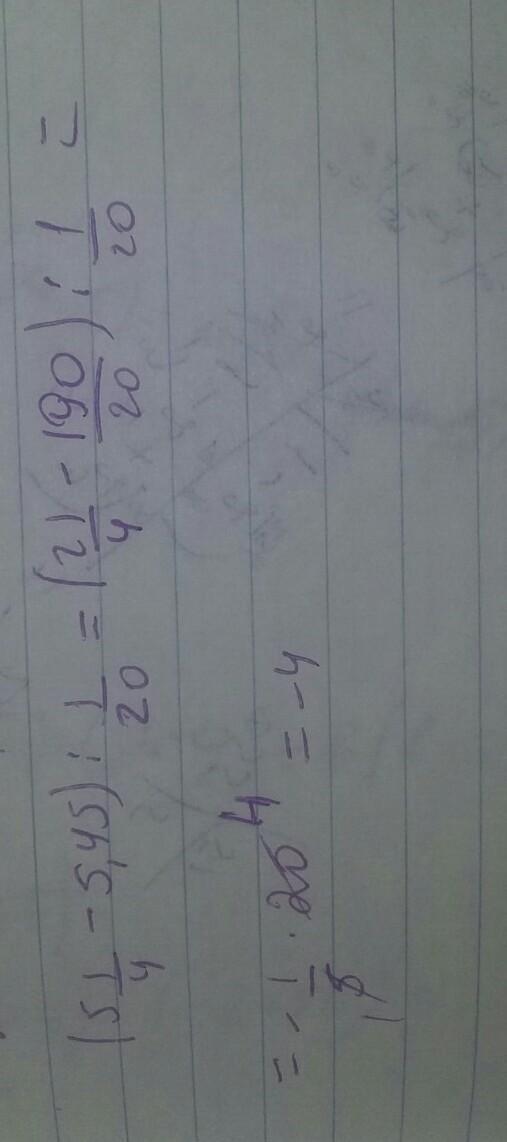 (5 1/4 - 5,45) : 1/20 = (21/4 - 190/20) : 1/20 =
= - 1/5 · 20 4 = -4
1